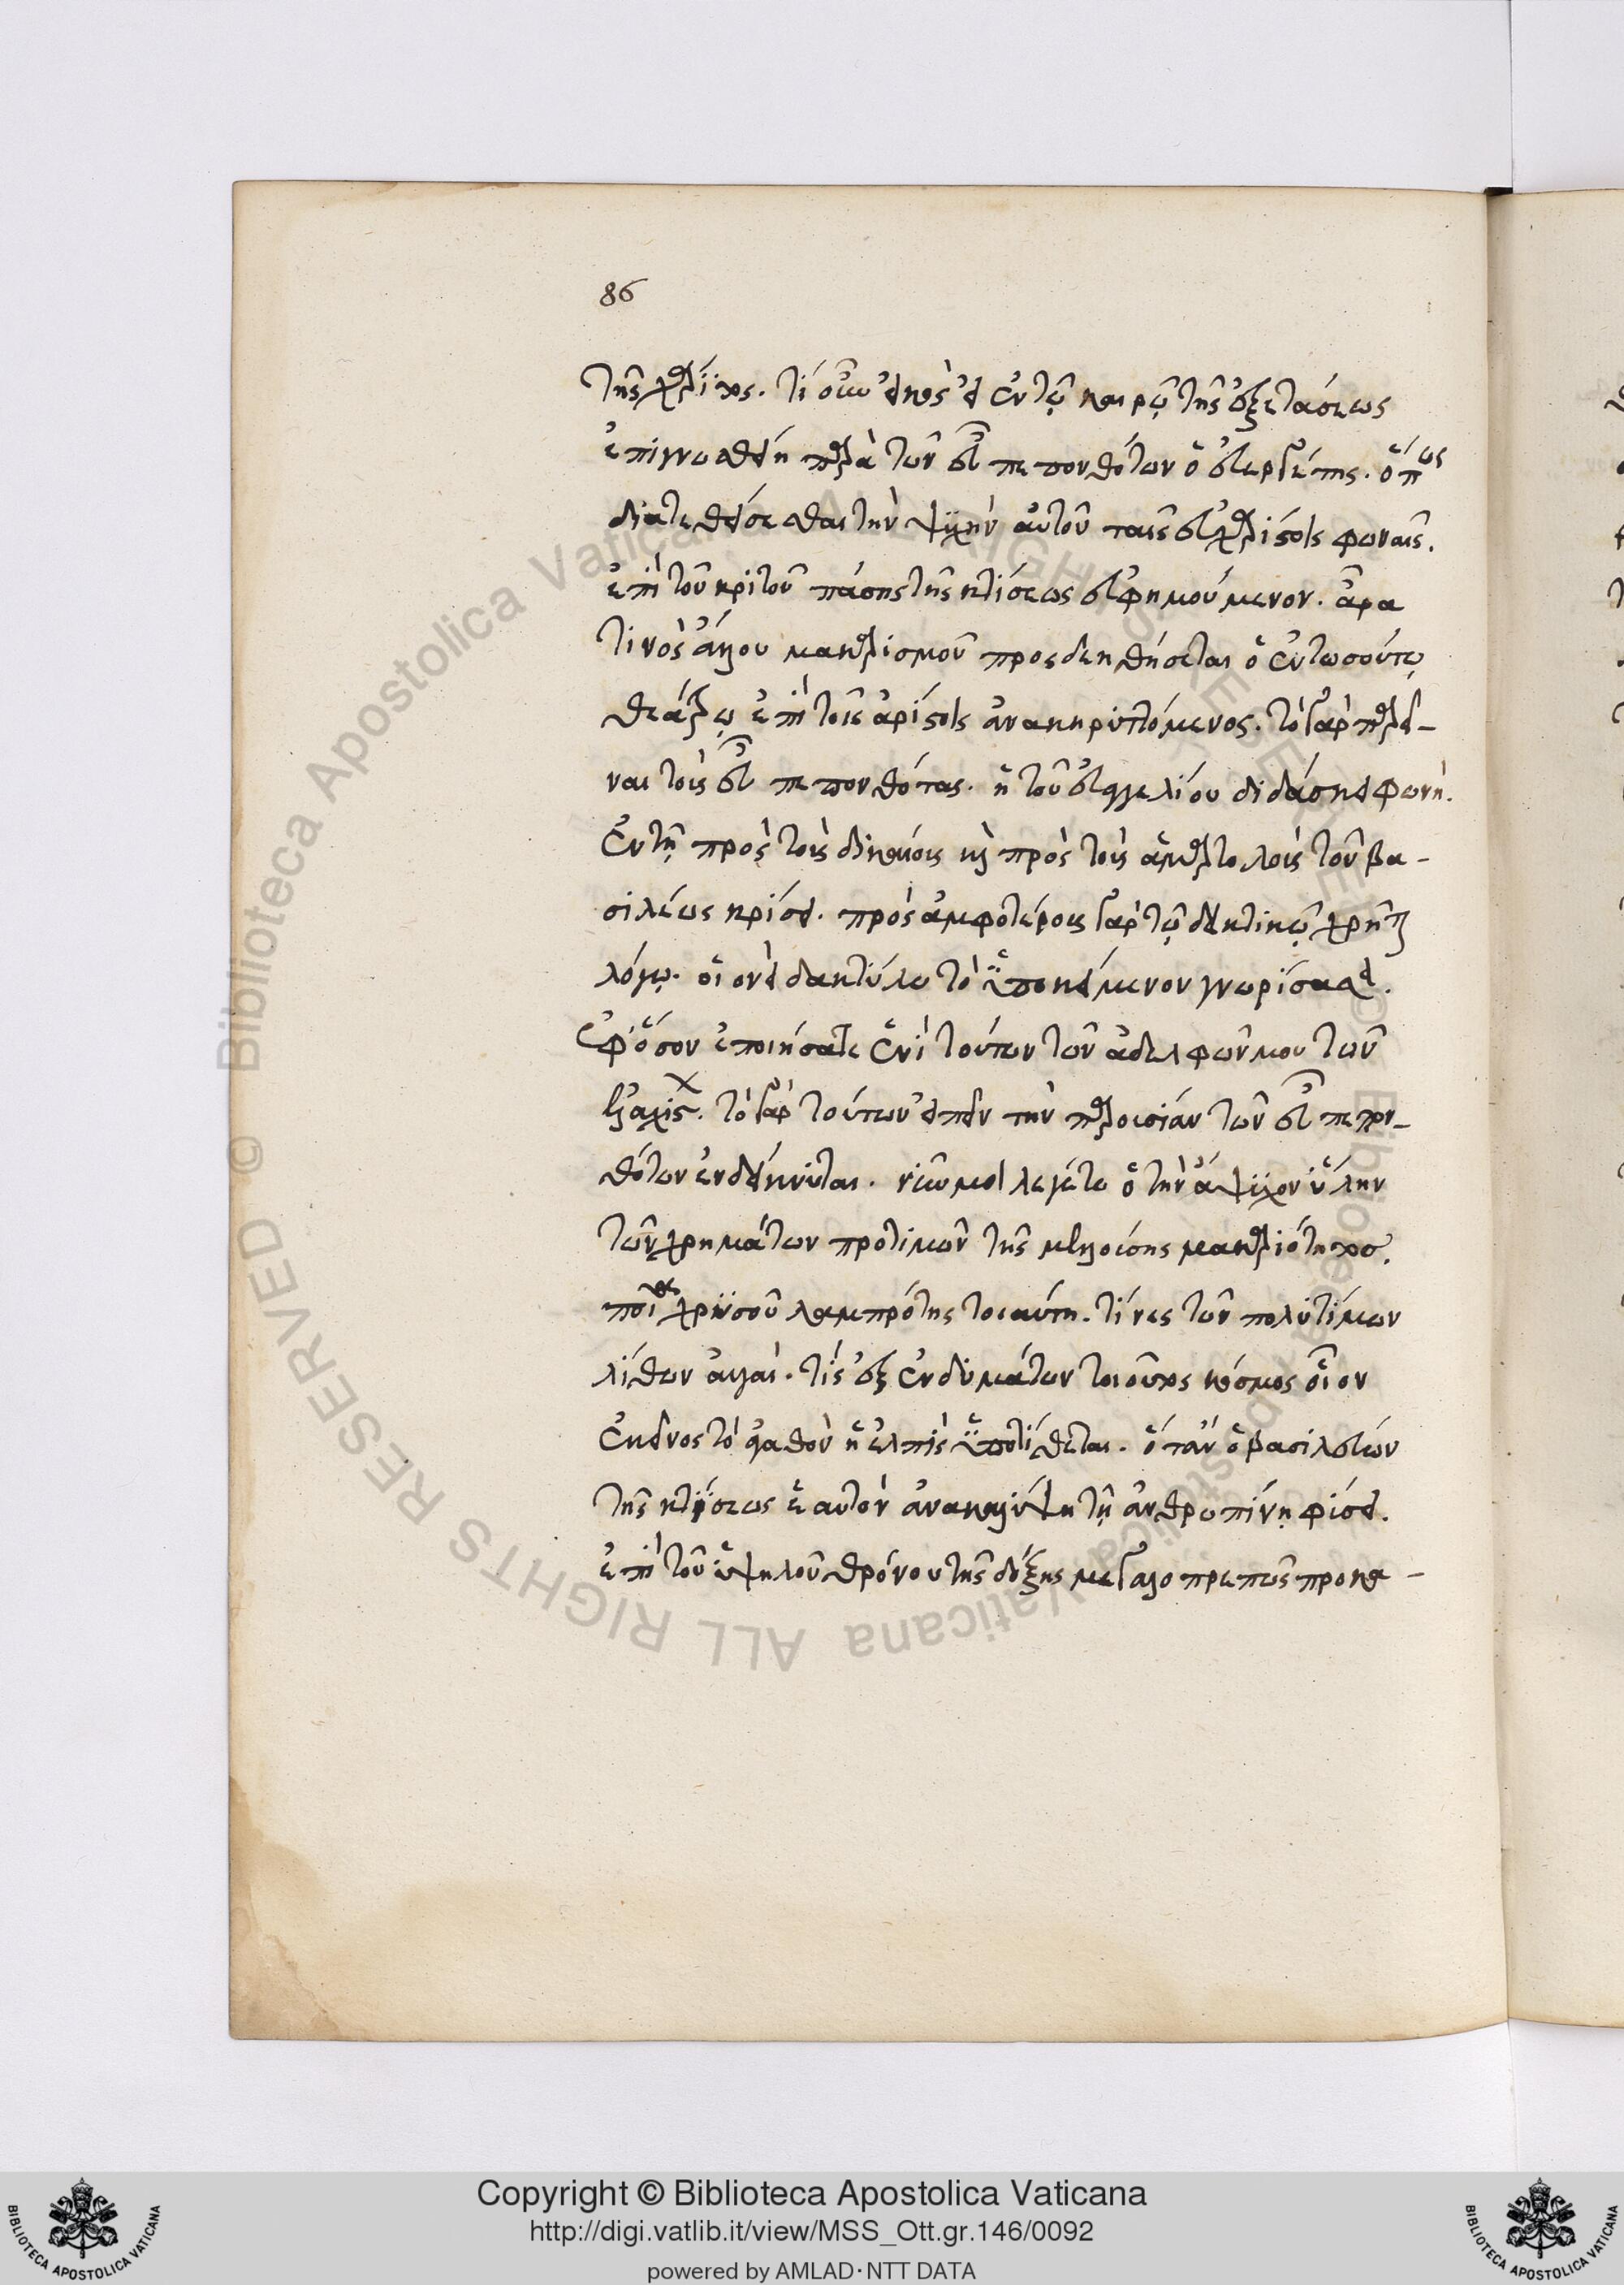 86
τῆς χάριτος. τί οὖν εἰκὸς εἰ ἐν τῷ καιρῷ τῆς ἐξετάσεως
ἐπιγνωσθείη παρὰ τῶν εὖ πεπονθότων ὁ εὐεργέτης. ὅπως
διατεθείσεσθαι τὴν ψυχὴν αὐτοῦ ταῖς εὐχαρίστοις φωναῖς.
ἐπὶ τοῦ κριτοῦ πάσης τῆς κτίσεως εὐφημούμενον. ἆρα
τινὸς ἄλλου μακαρισμοῦ προσδεηθήσεται ὁ ἐν τωσούτῳ
θεάτρῳ ἐπὶ τοῖς ἀρίστοις ἀνακηρυττόμενος. τὸ γὰρ παρεῖ-
ναι τοὺς εὖ πεπονθότας. ἡ τοῦ εὐαγγελίου διδάσκει φωνὴ.
ἐν τῇ πρὸς τοὺς δικαίους καὶ πρὸς τοὺς ἁμαρτολοὺς τοῦ βα-
σιλέως κρίσει. πρὸς ἀμφοτέρους γὰρ τῷ δεικτικῷ χρῆται
λόγῳ. οἱονεὶ δακτύλω τὸ ὑποκείμενον γνωρίσασει.
ἐφ' ὅσον ἐποιήσατε ἑνὶ τούτων τῶν ἀδελφῶν μου τῶν
ἐλαχίστων. τὸ γὰρ τούτων εἰπεῖν τὴν παρουσίαν τῶν εὖ πεπον-
θότων ἐνδείκνυται. νῦν μοι λεγέτω ὁ τὴν ἄψυχον ὕλην
τῶν χρημάτων προτιμῶν τῆς μελλούσης μακαριότητος.
ποία χρυσοῦ λαμπρότης τοιαύτη. τίνες τῶν πολυτίμων
λίθων αὐγαὶ. τίς ἐξ ἐνδυμάτων τοιοῦτος κόσμος οἷον
ἐκεῖνος τὸ ἀγαθὸν ἡ ἐλπὶς ὑποτίθεται. ὅταν ὁ βασιλεύων
τῆς κτίσεως ἑαυτὸν ἀνακαλύψη τῇ ἀνθρωπίνῃ φύσει.
ἐπὶ τοῦ ὑψηλοῦ θρόνου τῆς δόξης μεγαλοπρεπῶς προκα-
Copyright © Biblioteca Apostolica Vaticana
http://digi.vatlib.it/view/MSS_Ott.gr.146/0092
powered by AMLAD·NTT DATA